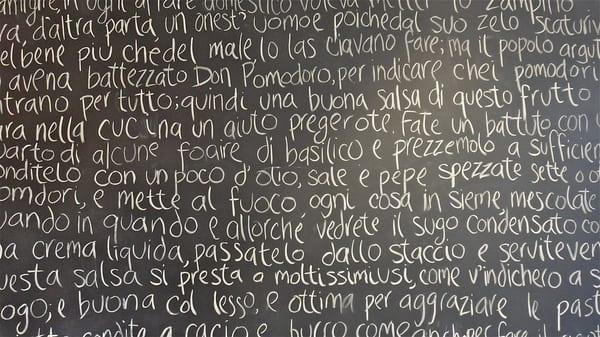 ogni affare domestico voleva lo zampino
d'altra parta un onest' uomo e poichedal suo zelo scaturiv
el bene più che del male, lo las ciavano fare; ma il popolo argut
avena battezzato Don Pomodoro, per indicare che i pomodori
ntrano per tutto; quindi una buona salsa di questo frutto
ara nella cuc ina un aiuto pregerote. Fate un battuto con u
uarto di alcune foaire di basilico e prezzemolo a sufficien
onditelo con un poco d'olio, sale e pepe spezzate sette o ot
omdori, e mette al fuoco ogni cosa in sieme, mescolate
uando in quando e allorché vedrete il sugo condensato co
a crema liquida, passatelo dallo staccio e servitever
uesta salsa si presta a moltissimiusi, come v'indichero a s
ogo; e buona col lesso, e ottima per aggraziare le past
condita a cacio e burro come anchperfare il